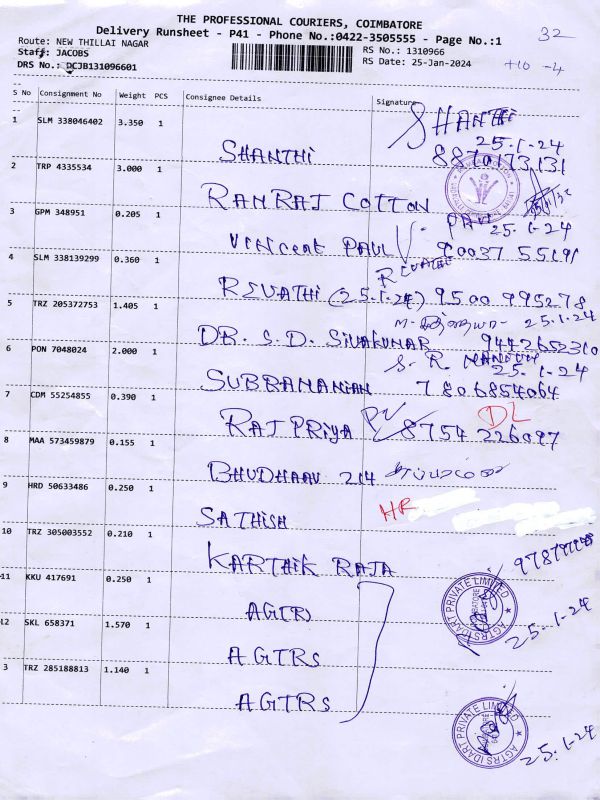 THE PROFESSIONAL COURIERS, COIMBATORE
Delivery Runsheet - P41 - Phone No.:0422-3505555 - Page No.:1
32
Route: NEW THILLAI NAGAR
RS No.: 1310966
Staff: JACOBS
RS Date: 25-Jan-2024
+10 -4
DRS No.: DCJB131096601
S No Consignment No Weight PCS Consignee Details Signature
1 SLM 338046402 3.350 1
SHANTHI
SHANTHI
25.1-24
8870173131
2 TRP 4335534 3.000 1
RAMRAJ COTTON
3 GPM 348951 0.205 1
VINCENT PAUL
PAUL
25.1-24
90037 55191
4 SLM 338139299 0.360 1
REVATHI
REVATHI (25.1-24) 9500 995278
5 TRZ 205372753 1.405 1
25.1-24
DR. S.D. SIVAKUMAR 9442652310
6 PON 7048024 2.000 1
S. R.
25.1-24
SUBRAMANIAN 7806854064
7 CDM 55254855 0.390 1
DL
RAJ PRIYA 8754 226097
8 MAA 573459879 0.155 1
BHUDHAAV 214
9 HRD 50633486 0.250 1
SATHISH
HR
10 TRZ 305003552 0.210 1
KARTHIK RAJA
11 KKU 417691 0.250 1
AGTRS IDART PRIVATE LIMITED
25.1-24
12 SKL 658371 1.570 1
AGTRS
3 TRZ 285188813 1.140 1
AGTRS
AGTRS IDART PRIVATE LIMITED
25.1-24